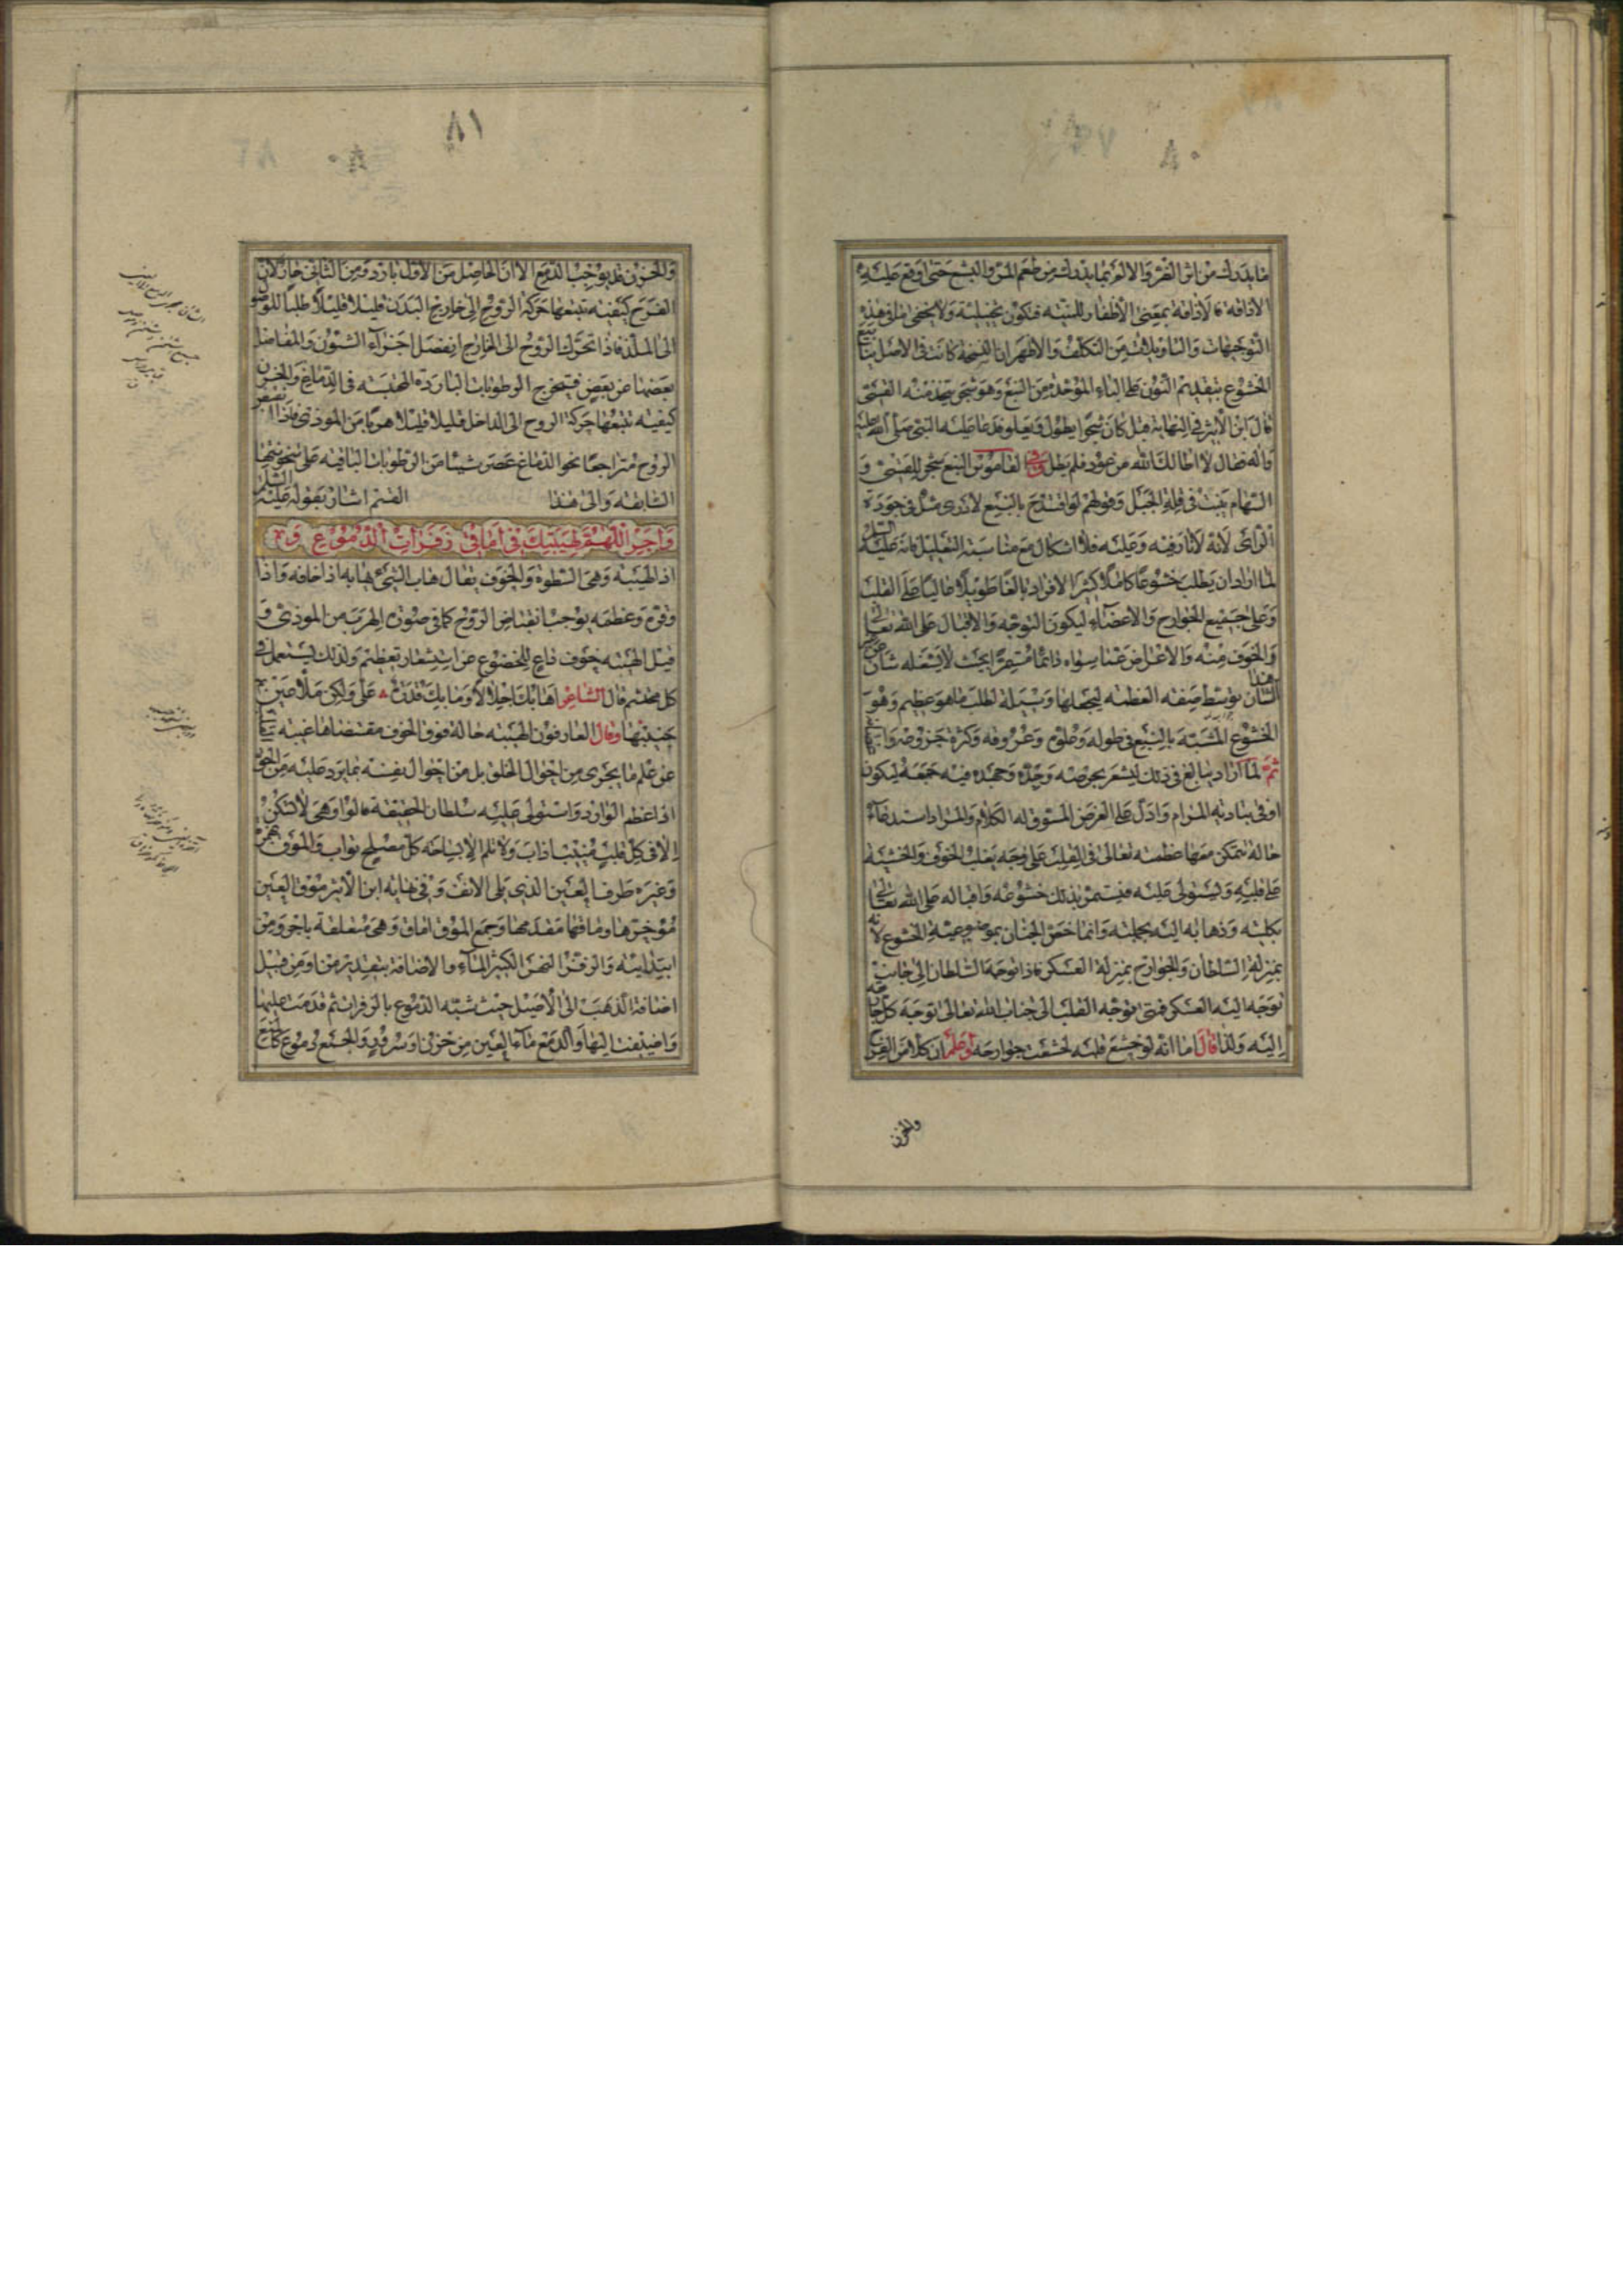 ٨٠
ما يدرك من اثر الضر والالم بما يدرك من طعم المر والبشع حتى اوقع عليه
الاذاقة فالاذاقة بمعنى الاظفار للنية فتكون تخييلية ولا يخفى ما في هذه
التوجيهات والتاويلات من التكلف والاظهر ان النسخة كانت في الاصل ينابيع
الخشوع بتقديم النون على الباء الموحدة من النبع وهو شجر يتخذ منه القسي
قال ابن الاثير في النهاية قيل كان شجرا يطول ويعلو فدعا عليه النبي صلى الله عليه
واله فقال لا اطالك الله من عود فلم يطل وفي القاموس النبع شجر للقسي و
السهام ينبت في قلة الجبل وقولهم لو اقتدح بالنبع لاورى مثل في جودة
الراي لانه لا نار فيه وعليه فلا اشكال مع مناسبته التعليل فانه عليه السلام
لما اراد ان يطلب خشوعا كاملا كثير الافراد بالغا طويلا غالبا على القلب
وعلى جميع الجوارح والاعضاء ليكون التوجه والاقبال على الله تعالى
والخوف منه والاعراض عما سواه دائما مستمرا بحيث لا يشغله شان عن هذا
الشان توسط صفته العظمة ليجعلها وسيلة لطلب ما هو عظيم وهو
الخشوع المشبه بالنبع في طوله وعلوه وعروقه وكثرة
ثم لما اراد يبالغ في ذلك ليشعر بحرصه وجده وجهده فيه جمعه ليكون
اوفى بتادية المرام وادل على الغرض المسوق له الكلام والمراد استدعاء
حالة تتمكن معها عظمته تعالى في القلب على وجه يغلب الخوف والخشية
على قلبه ويستولى عليه فيستمر بذلك خشوعه واقباله على الله تعالى
بكليته وذهابه اليه بجملته وانما خص الجنان بموضوعية الخشوع لانه
بمنزلة السلطان والجوارح بمنزلة العسكر فاذا توجه السلطان الى جانب
توجه اليه العسكر فمتى توجه القلب الى جناب الله تعالى توجه كل جارحة
اليه ولذا قال اما انه لو خشع قلبه لخشعت جوارحه واعلم ان كلا من الفرح
والحزن
٨١
والحزن قد يوجب الدمع الا ان الحاصل من الاول بارد ومن الثاني حار لان
الفرح كيفية تتبعها حركة الروح الى خارج البدن قليلا قليلا طلبا للوصول
الى الملذ فاذا تحرك الروح الى الخارج انفصل اجزاء الشؤن والمفاصل
بعضها عن بعض فتخرج الرطوبات الباردة المحتبسة في الدماغ والحزن
كيفية تتبعها حركة الروح الى الداخل قليلا قليلا هربا من الموذي فاذا انقبض
الروح متراجعا نحو الدماغ عصر شيئا من الرطوبات الباقية على سخونتها
السابقة والى هذا القسم اشار بقوله عليه السلام
واجر اللهم لهيبتك من اماقي زفرات الدموع
اذ الهيبة وهي السطوة والخوف يقال هاب الشيء يهابه اذا خافه واذا
وقره وعظمه يوجب انقباض الروح كما في صورة الهرب من الموذي و
قيل الهيبة خوف داع للخضوع عن استشعار تعظيم ولذلك يستعمل في
كل محتشم قال الشاعر اهابك اجلالا وما بك قدرة على ولكن ملا عين
حبيبها وقال العارفون الهيبة حالة فوق الخوف مقتضاها غيبة
عن علم ما يجرى من احوال الخلق بل من احوال نفسه بما يرد عليه من الحق
اذا عظم الوارد واستولى عليه سلطان الحقيقة قالوا وهي لا تكون
الا في كل قلب منيب اواب ولا تلم الا بساحة كل مصلح تواب والموق بهمزة
وغيره طرف العين الذي يلى الانف وفي نهاية ابن الاثير موق العين
مؤخرها وماقها مقدمها وجمع الموق اماق وهي متعلقة باجر ومن
ابتدائية والزفر النهر الكبير الماء والاضافة بتقدير من او من قبيل
اضافة الذهب الى الاصيل حيث شبه الدموع بالزفرات ثم قدمت عليها
واضيفت اليها والدمع ماء العين من حزن او سرور والجمع دموع